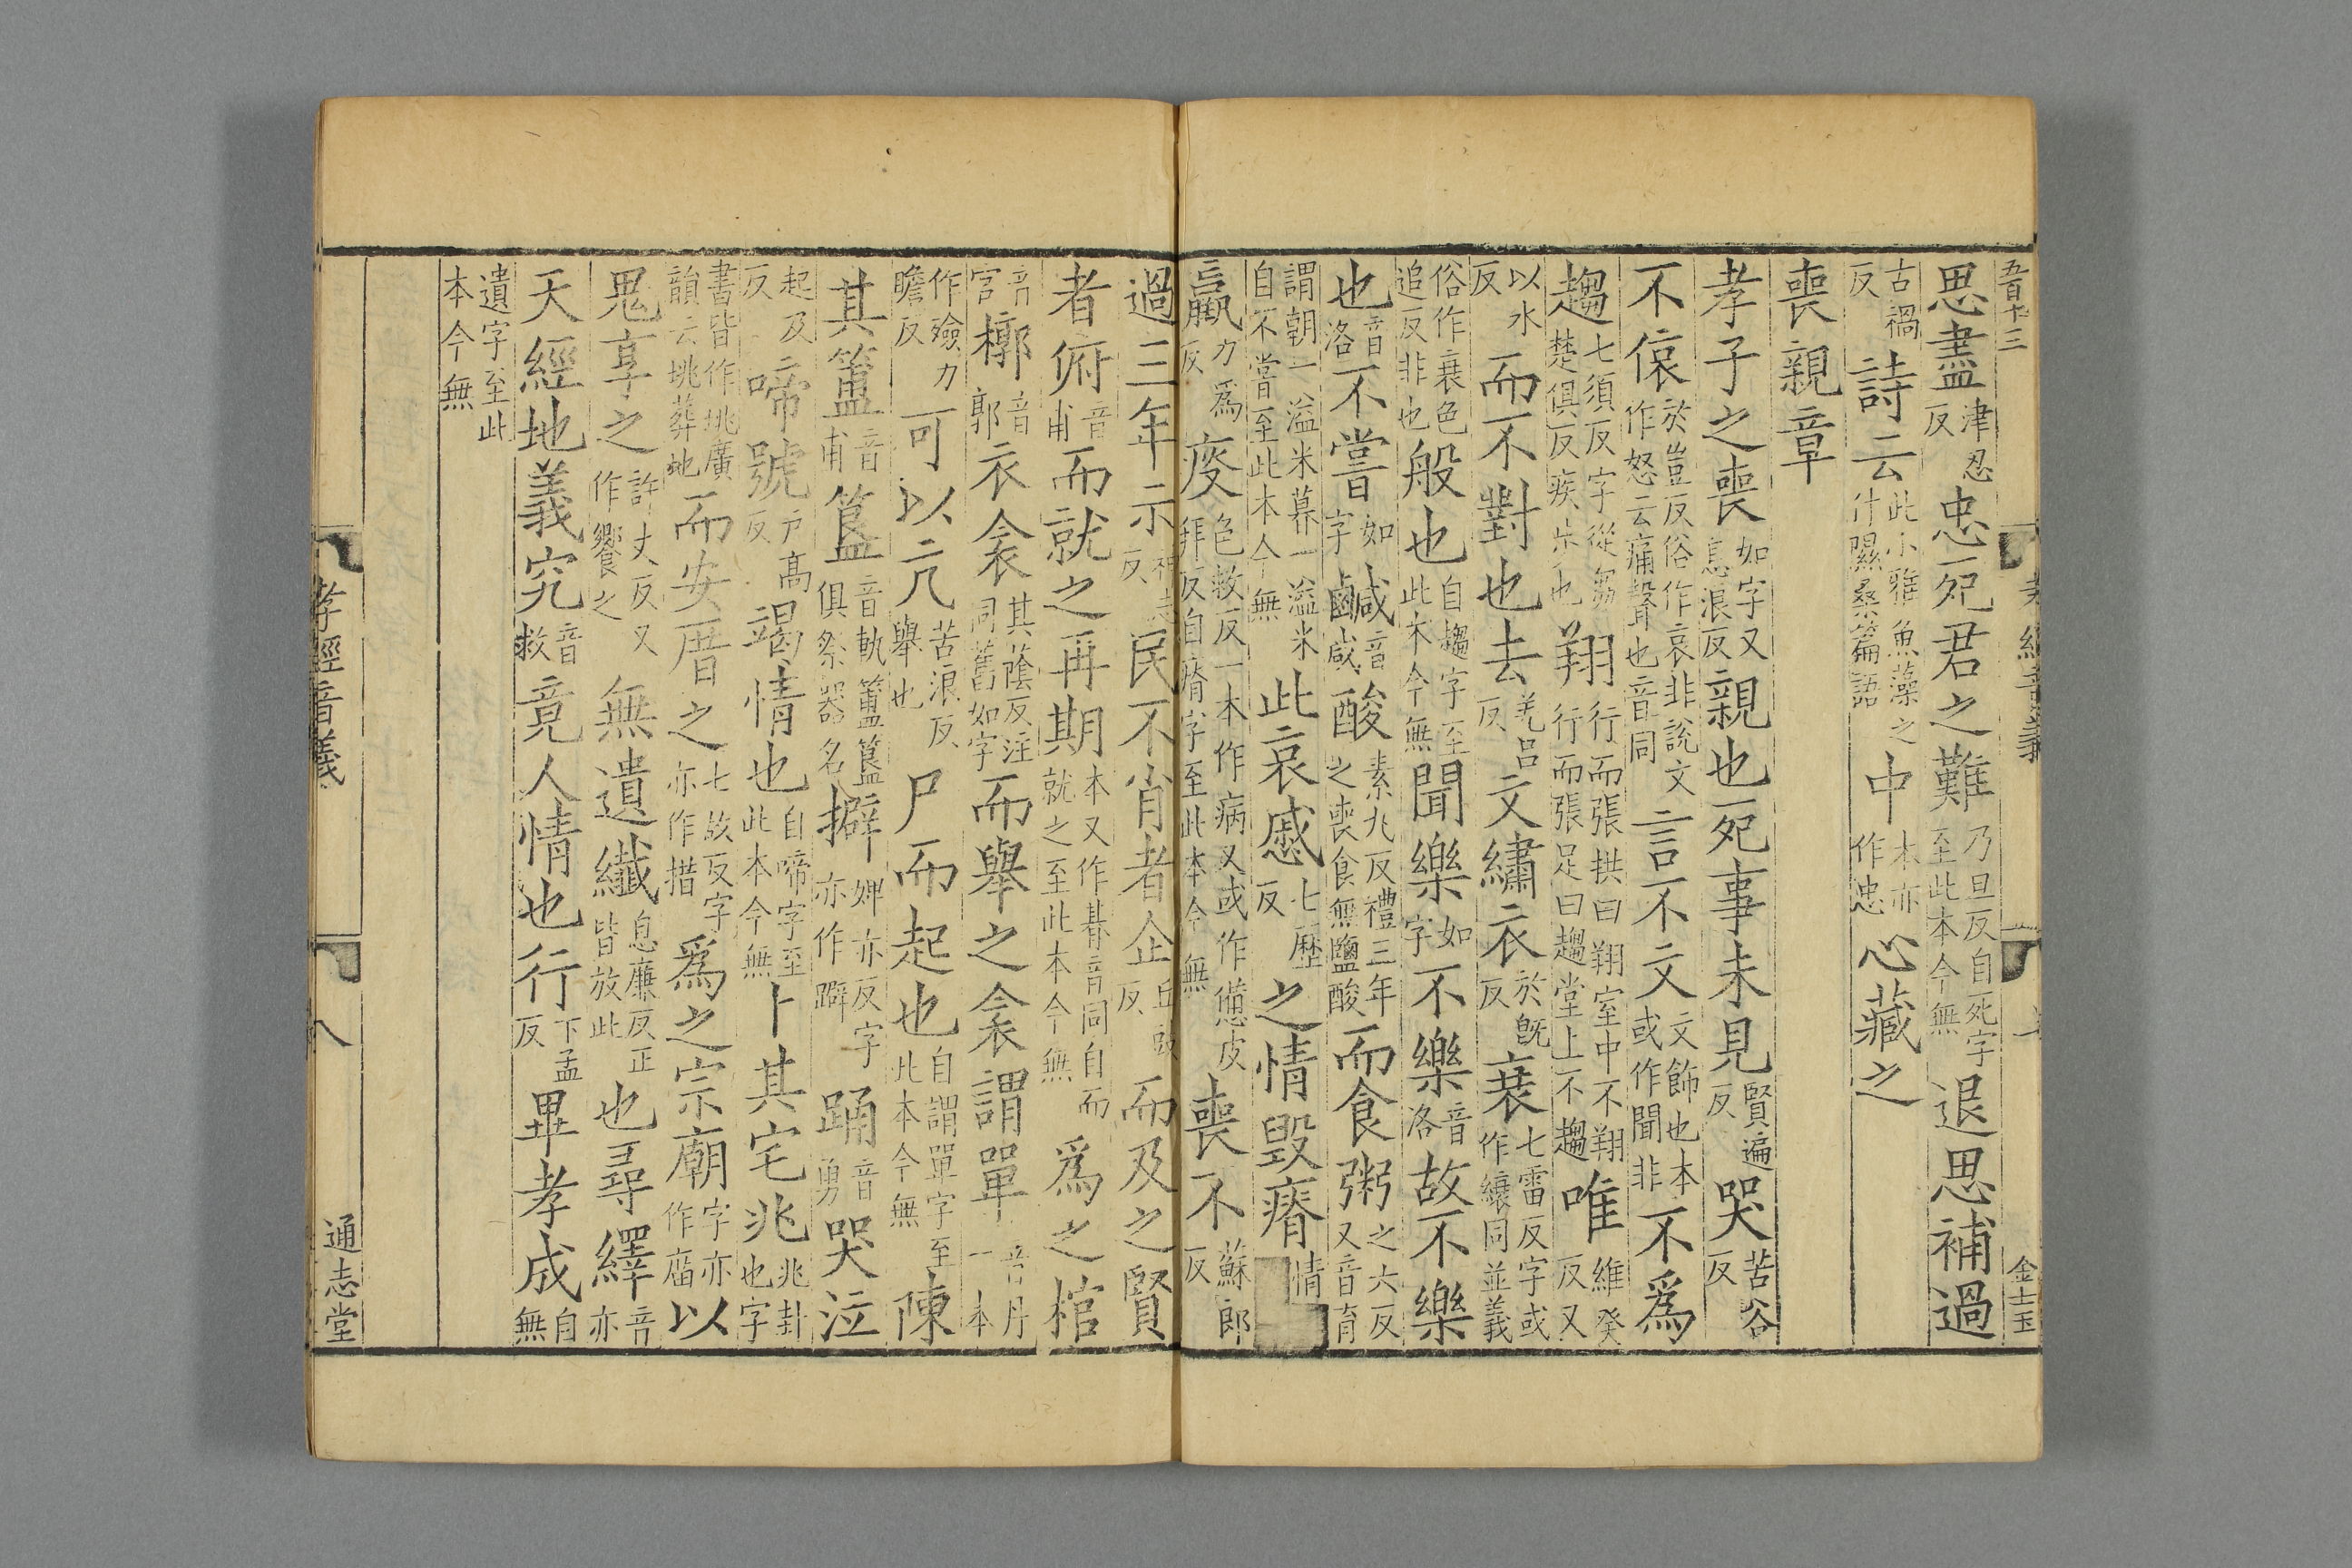 五百十三 孝經音義 金士玉
思盡津忍反忠死君之難乃旦反自死字至此本今無退思補過
古禍反詩云此小雅魚藻之什隰桑篇語中本亦作忠心藏之
喪親章
孝子之喪如字又息浪反親也死事未見賢遍反哭苦谷反
不偯於豈反俗作哀非說文作㥋云痛聲也音同言不文文飾也本或作聞非不爲
趨七須反字從芻楚俱反疾步也翔行而張拱曰翔室中不翔行而張足曰趨堂上不趨唯維癸反又
以水反而不對也去羌呂反文繡衣於旣反衰七雷反字或作縗同並義
俗作衰色追反非也般也自趨字至此本今無聞樂如字不樂音洛故不樂
也音洛不嘗如字鹹音咸酸素丸反禮三年之喪食無鹽酸而食粥之六反又音育
謂朝一溢米暮一溢米自不嘗至此本今無此哀慼七歷反之情毀瘠情
羸力爲反㾭色救反一本作病又或作憊皮拜反自瘠字至此本今無喪不蘇郎反
過三年示反民不肖者企丘豉反而及之賢
者俯音甫而就之再期本又作朞音同自而就之至此本今無爲之棺
音官槨音郭衣衾其蔭反注同舊如字而舉之衾謂單音丹一本
作殮力瞻反可以亢苦浪反舉也尸而起也自謂單字至此本今無陳
其簠音甫簋音軌簠簋俱祭器名擗婢亦反字亦作躃踊音勇哭泣
起及反啼號戶高反竭情也自啼字至此本今無卜其宅兆兆卦也字
書皆作垗廣韻云垗葬地而安厝之七故反字亦作措爲之宗廟字亦作庿以
鬼享之許丈反又作饗之無遺纎息廉反正皆放此也尋繹音亦
天經地義究音救竟人情也行下孟反畢孝成自無
遺字至此本今無
孝經音義 八 通志堂